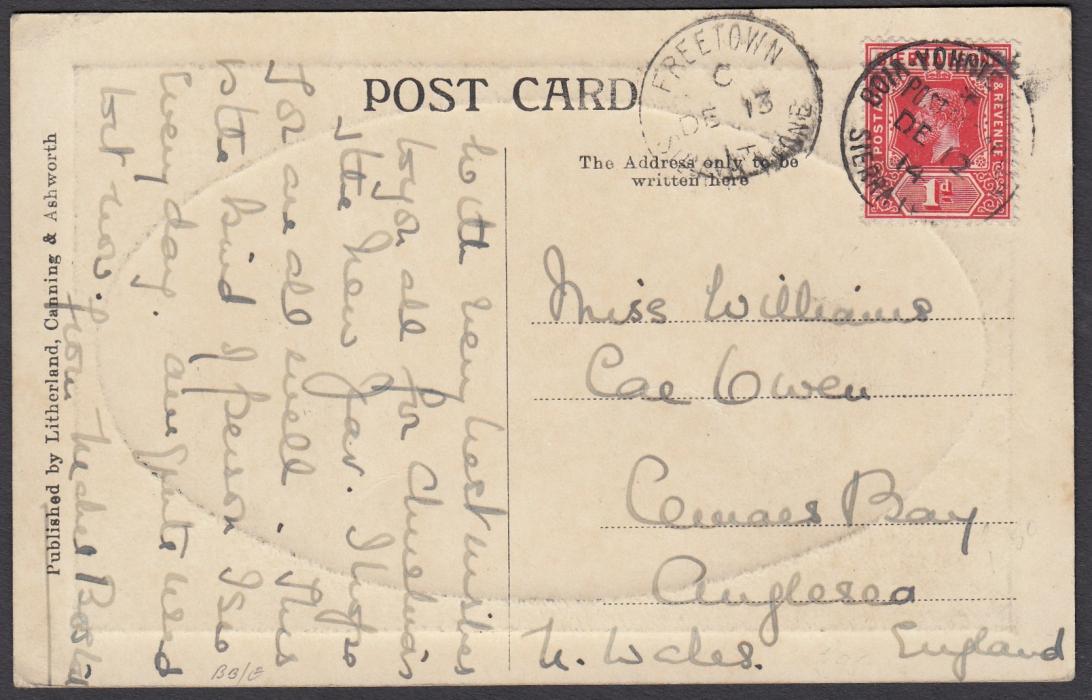 POST CARD
The Address only to be
written here
FREETOWN
C
DE 13
SIERRA LEONE
DE 12
14
SIERRA
POSTAGE & REVENUE
1d
Miss Williams
Cae Owen
Cemaes Bay
Anglesea
N. Wales. England
With very best wishes
to you all for Christmas
& the New Year. I hope
You are all well. This
is the kind of person I see
Every day. Am quite used
to it now.
from
Published by Litherland, Canning & Ashworth
BB/E